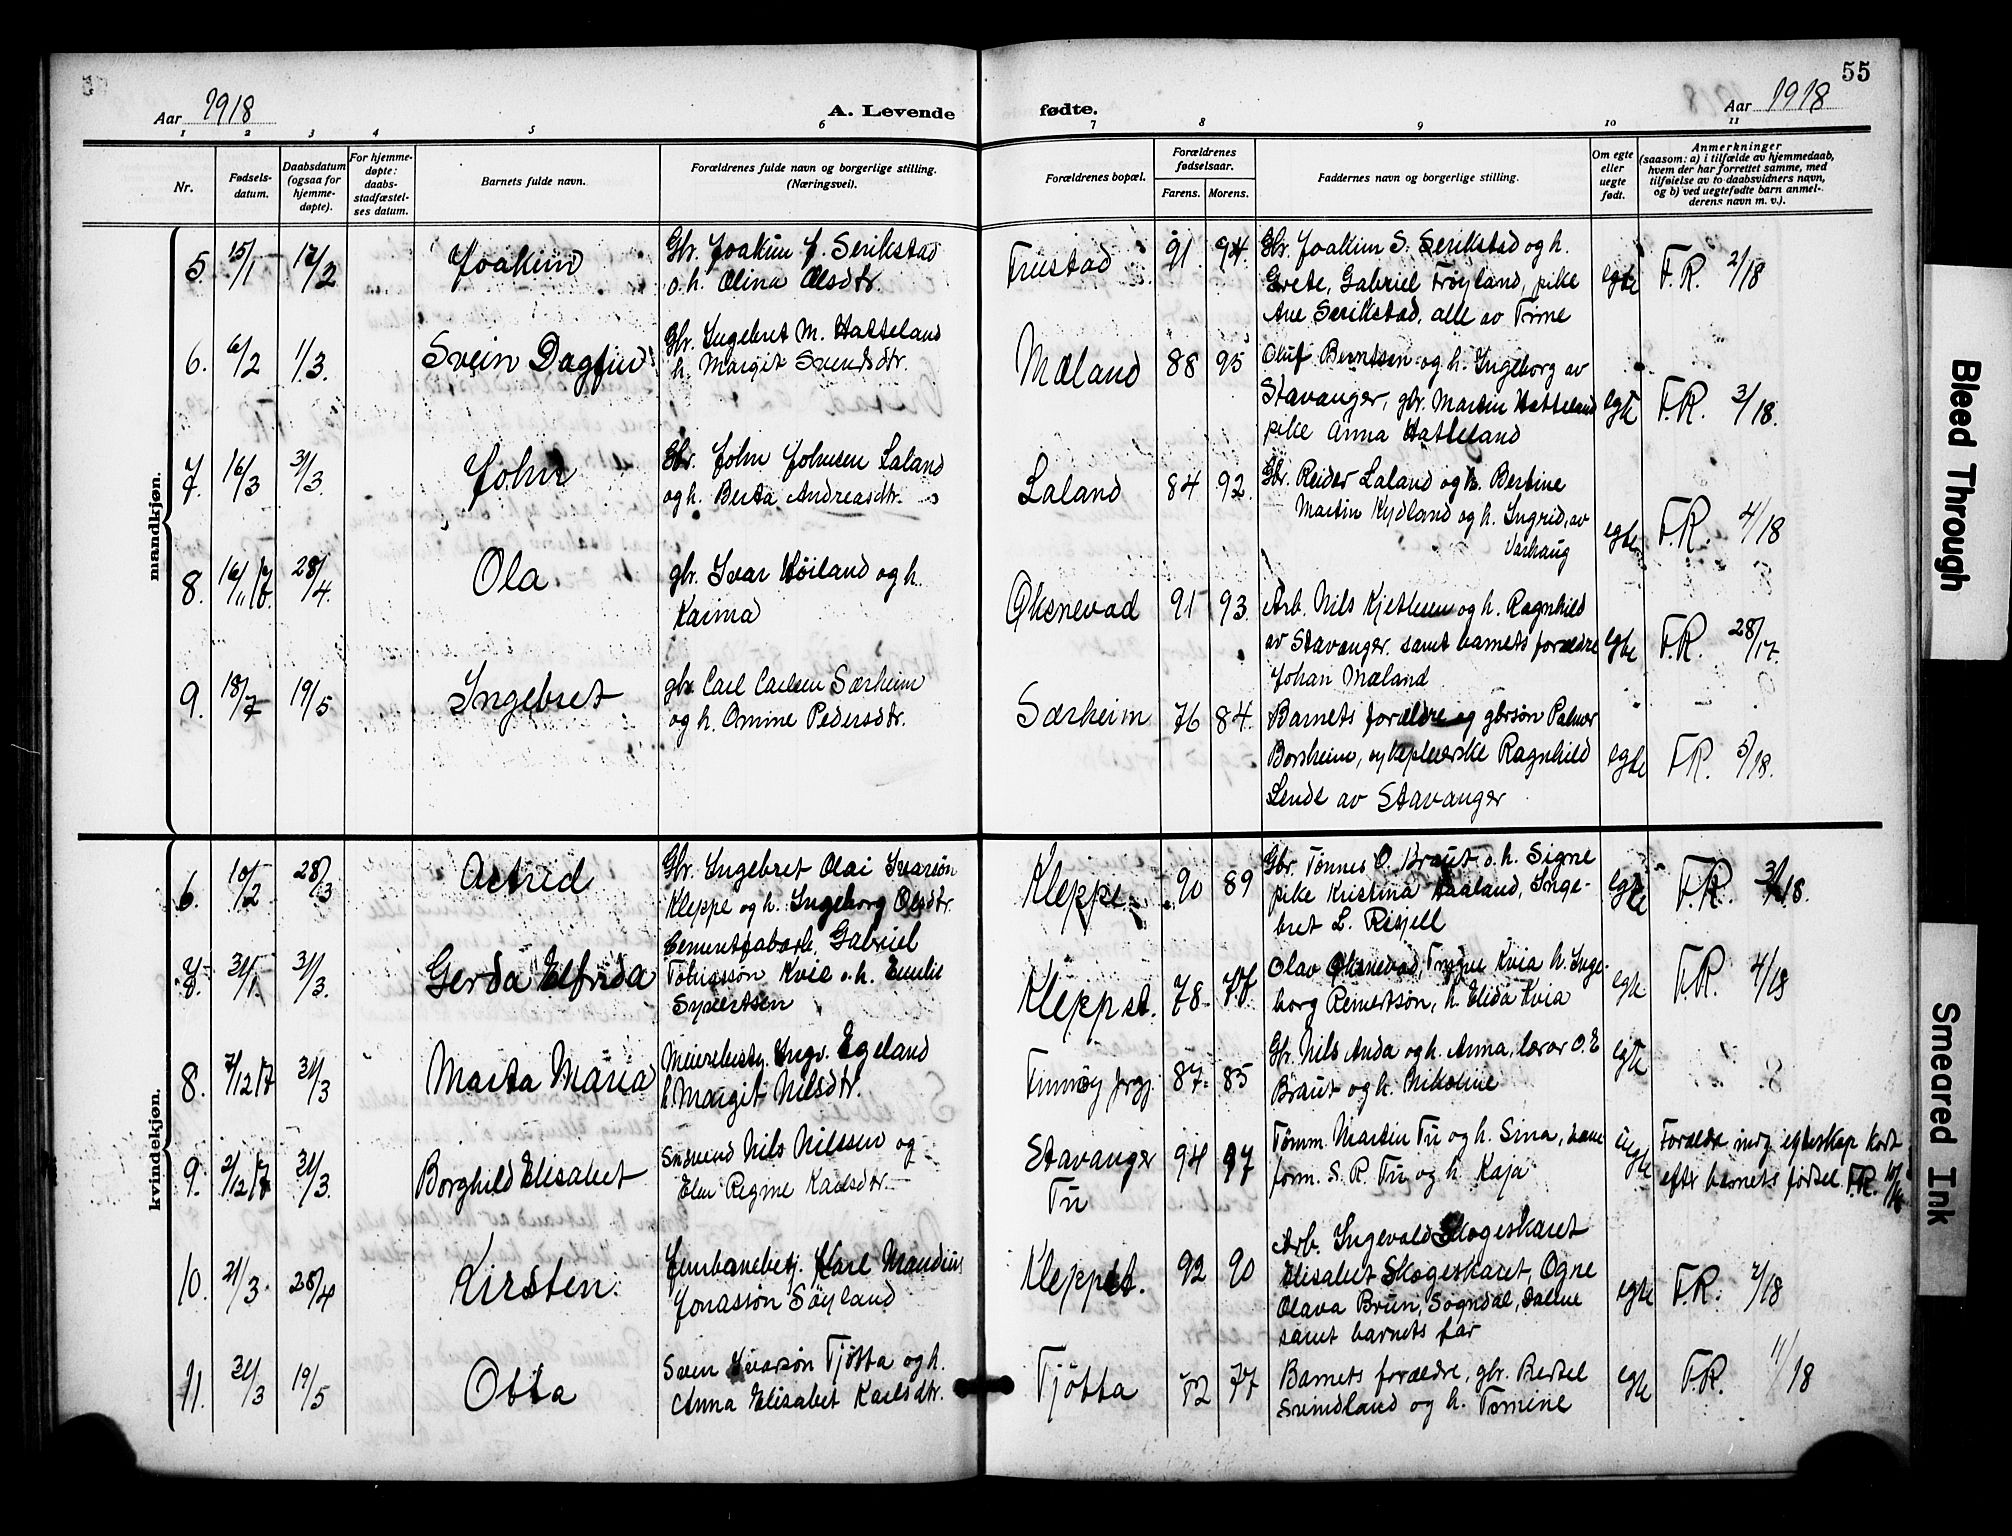 55
Aar 1918
A. Levende
fødte.
Aar 1918
1 2 3 4 5 6 7 8 9 10 11
Nr.
Fødsels-
datum.
Daabsdatum
(ogsaa for
hjemme-
døpte).
For hjemme-
døpte:
daabs-
stadfæstel-
ses datum.
Barnets fulde navn.
Forældrenes fulde navn og borgerlige stilling.
(Næringsvei).
Forældrenes bopæl.
Forældrenes
fødselsaar.
Farens. Morens.
Faddernes navn og borgerlige stilling.
Om egte
eller
uegte
født.
Anmerkninger
(saasom: a) i tilfælde av hjemmedaab,
hvem der har forrettet samme, med
tilføielse av to daabsvidners navn,
og b) ved uegtefødte barn anmel-
derens navn m. v.).
mandkjøn.
5. 15/1 17/2 Joakim
Gbr. Joakim J. Serikstad
o.h. Olina Olsdtr
Friestad 91 94.
Gbr. Joakim S. Serikstad og h.
Grete, Gabriel Frøyland, pike
Ane Serikstad, alle av Time
egte F.R. 2/18
6. 6/2 1/3. Svein Dagfin
Gbr. Ingebret M. Hatteland
h. Margit Svendsdtr.
Mæland 88 95
Oluf Berntsen og h. Ingeborg av
Stavanger, gbr. Martin Hatteland
pike Anna Hatteland
egte F.R. 3/18.
7. 16/3 31/3. John
Gbr. John Johnsen Laland
og h. Berta Andreasdtr.
Laland 84 92.
Gbr. Reider Laland og h. Bertine
Martin Kydland og h. Ingrid, av
Varhaug
egte F.R. 4/18
8. 28/4. Ola
gbr. Ivar Høiland og h.
Karina
Øksnevad 91 93.
Arb. Nils Kjetheim og h. Ragnhild
av Stavanger samt barnets forældre
Johan Mæland
egte F.R. 28/17.
9. 18/7 19/5 Ingebret
gbr. Carl Carlsen Særheim
og h. Omine Pedersdtr.
Særheim 76 84.
Barnets forældre og gbrsøn Palmer
Borsheim, sykepleierske Ragnhild
Lende av Stavanger
egte F.R. 5/18.
kvindekjøn.
6. 10/2 28/3 Astrid
Gbr. Ingebret Olai Ivarsøn
Kleppe og h. Ingeborg Olsdtr.
Kleppe. 90 89
Gbr. Tønnes O. Braut o.h. Signe
pike Kristina Haaland, Inge-
bret L. Resjell
egte F.R. 3/18.
7. 31/1. 31/3. Gerda Elfrida
Cementfabarb. Gabriel
Tobiassøn Kvie o.h. Emilie
Syvertsen
Klepp st. 78. 77.
Olav Øksnevad, Trygve Kvia h. Inge-
borg Reinertsøn, h. Elida Kvia
egte F.R. 4/18
8. 7/12 17 31/3 Marta Maria
Meieribesty. Ingv. Egeland
h. Margit Nilsdtr.
87. 85
Gbr. Nils Anda og h. Anna, lærer O. E
Braut og h. Nikoline
egte
9. 2/12 17 31/3. Borghild Elisabet
Nils Nilssen og
Regine Karlsdtr.
Stavanger
Tu
94 97
Tømm. Martin Tu og h. Sina, samt
form. S. R. Tu og h. Kaja
uegte
Forældre indg. egteskap kort
efter barnets fødsel. F.R.
10. 21/3. 28/4 Kirsten.
Jernbanebetj. Karl Maudius
Jonassøn Søyland
Klepp st. 92 90
Arb. Ingevald Skogeskaret
Elisabet Skogeskaret, Ogne
Olava Brun, Sogndal, Dalene
samt barnets far
egte F.R.
11. 31/3 19/5 Otta
Sven Ivarsøn Tjøtta og h.
Anna Elisabet Karlsdtr.
Tjøtta 72 77
Barnets forældre, gbr. Bertel
Svindland og h. Tomine
egte F.R. 11/18
Bleed Through
Smeared Ink